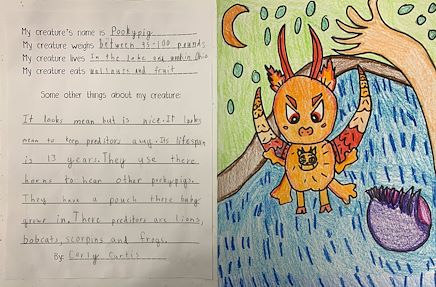 My creature's name is Pookypig
My creature weighs between 95-100 pounds
My creature lives In the lake and woods in Ohio
My creature eats wallnuts and fruit
Some other things about my creature:
It looks mean but is nice. It looks
mean to keep preditors away. Its lifespan
is 13 years. They use there
horns to hear other pookypigs.
They have a pouch there baby
grows in. There preditors are lions,
bobcats, scorpins and frogs.
By: Carly Curtis